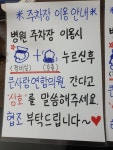 ※주차장 이용안내※
병원 주차장 이용시
누르신후
큰사랑연합의원 간다고
말씀해주세요.
협조 부탁드립니다~♡